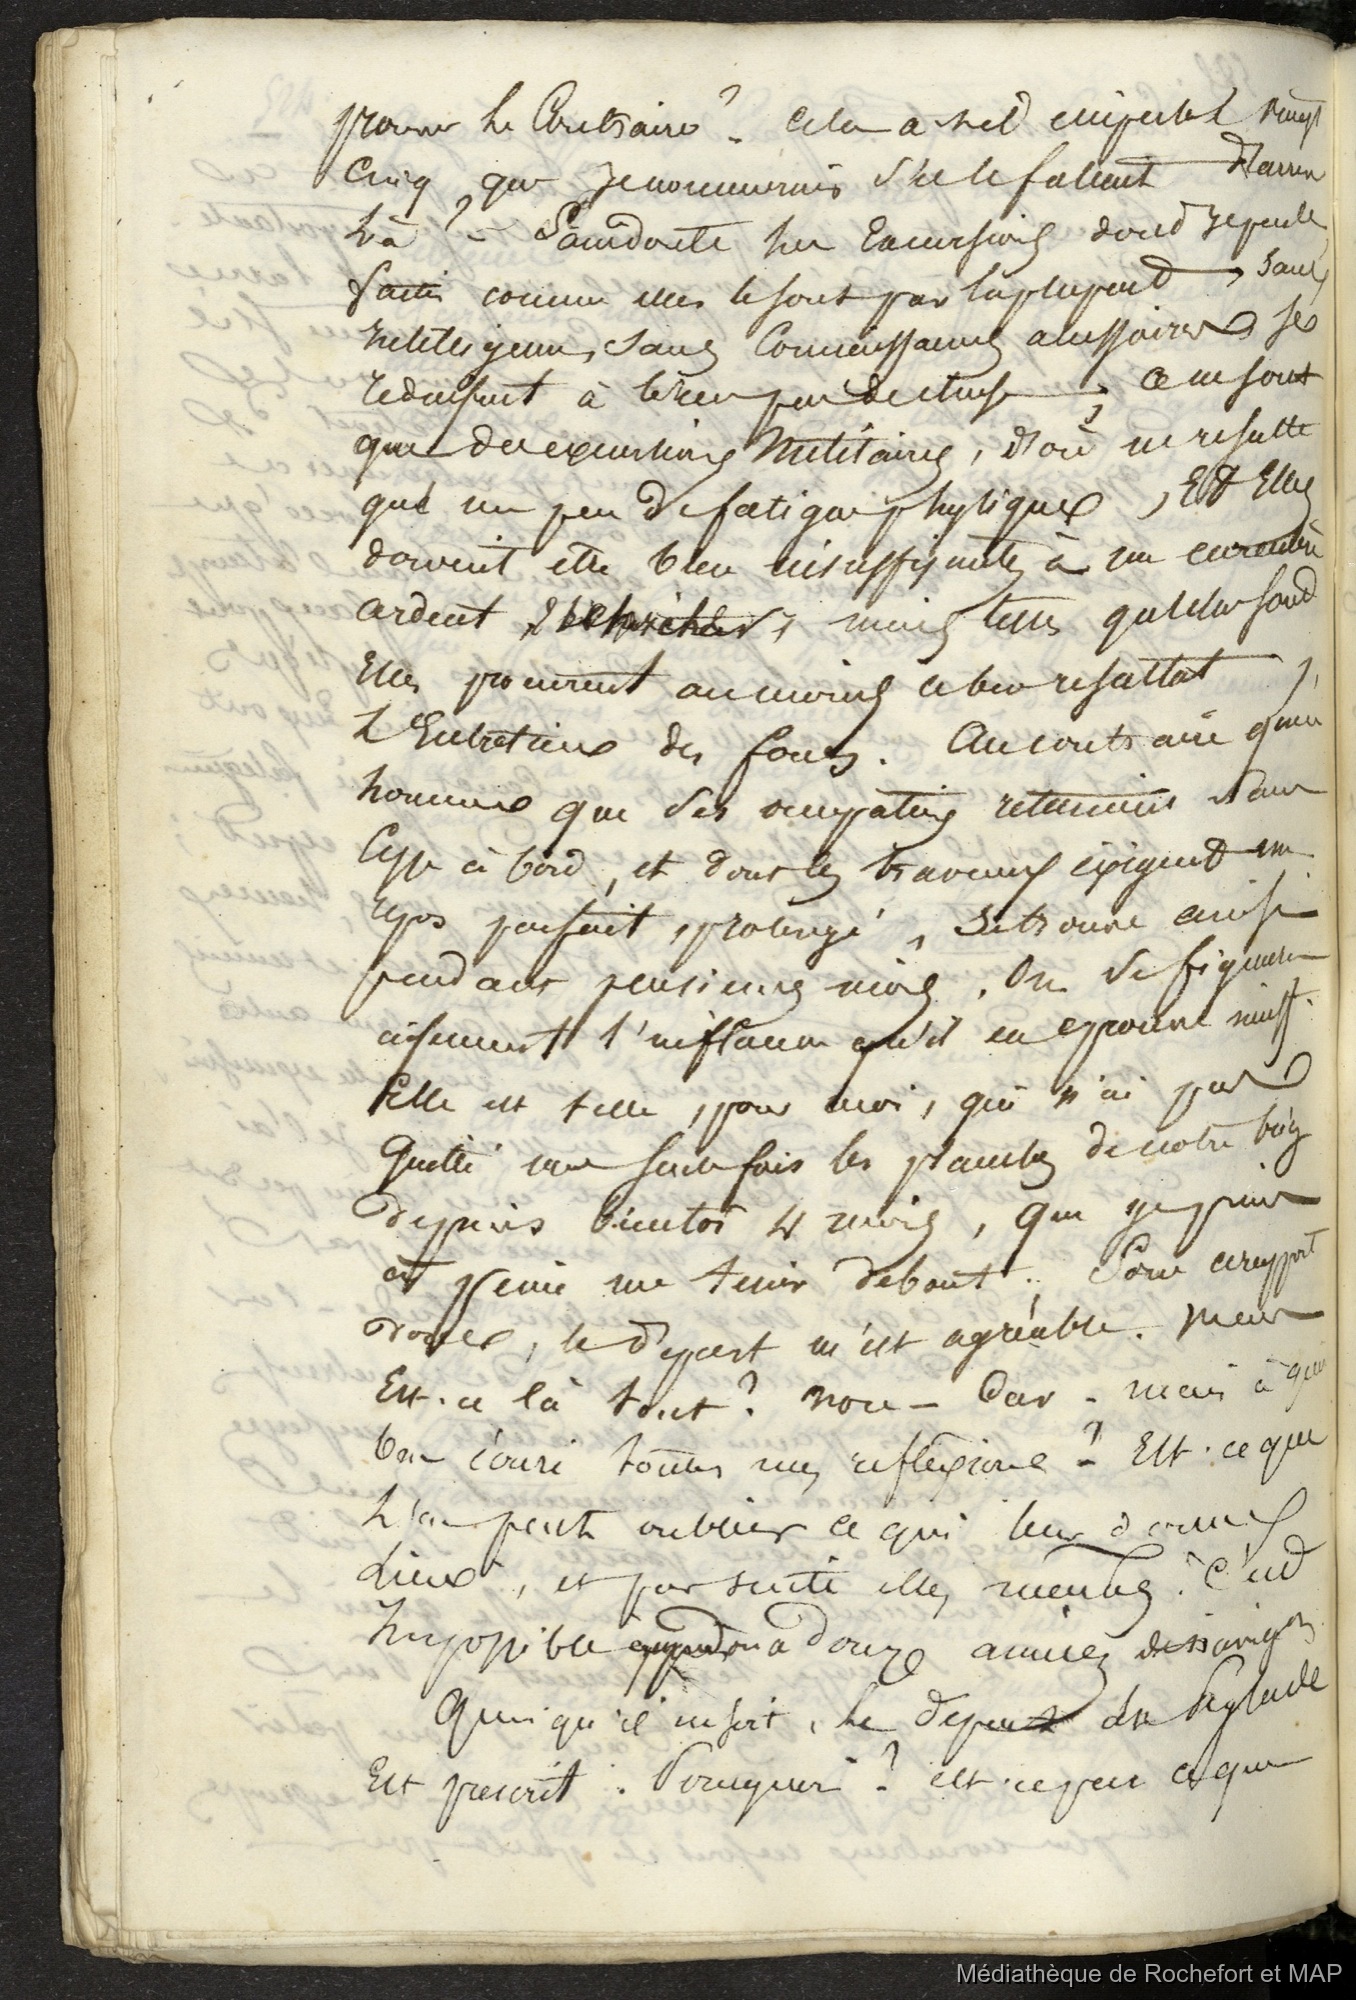 prouver le Contraire ? - Cela a-t-il empeché vingt
Cinq que je nommerais s'il le fallait d'arriver
là ? - Sans doute les Excursions dont je parle
faites comme elles le sont par la plupart, sans
intelligence, sans Connaissances accessoires se
reduisent à bien peu de chose ; ce ne sont
que des excursions Militaires, d'où ne resulte
qu'un peu de fatigue physique, Et Elles
doivent etre bien insuffisantes à un
ardent ; mais telles qu'elles sont
Elles procurent au moins ce bon resultat,
L'Entretien des forces. Au contraire qu'un
homme que des occupations retiennent sans
Cesse à bord, et dont les travaux éxigent un
repos parfait, prolongé, se trouve ainsi
pendant plusieurs mois. On se figurera
aisement l'influence qu'il en eprouve
Elle est telle, pour moi, qui n'ai pas
Quitté une seule fois les planches de notre brig
depuis bientot 4 mois, que je puis
à peine me tenir debout. ; Sous ce rapport
donc, le depart m'est agréable. Mais
Est-ce là tout ? non - Car - mais à quoi
bon écrire toutes mes reflexions ? - Est-ce que
L'on peut oublier ce qui leur donne
lieu, et par suite elles memes. C'est
Impossible on a douze années de navigation
Quoi qu'il en soit, le depart de l'Aglaé
Est prescrit. Pourquoi ? est-ce parce que
Médiathèque de Rochefort et MAP